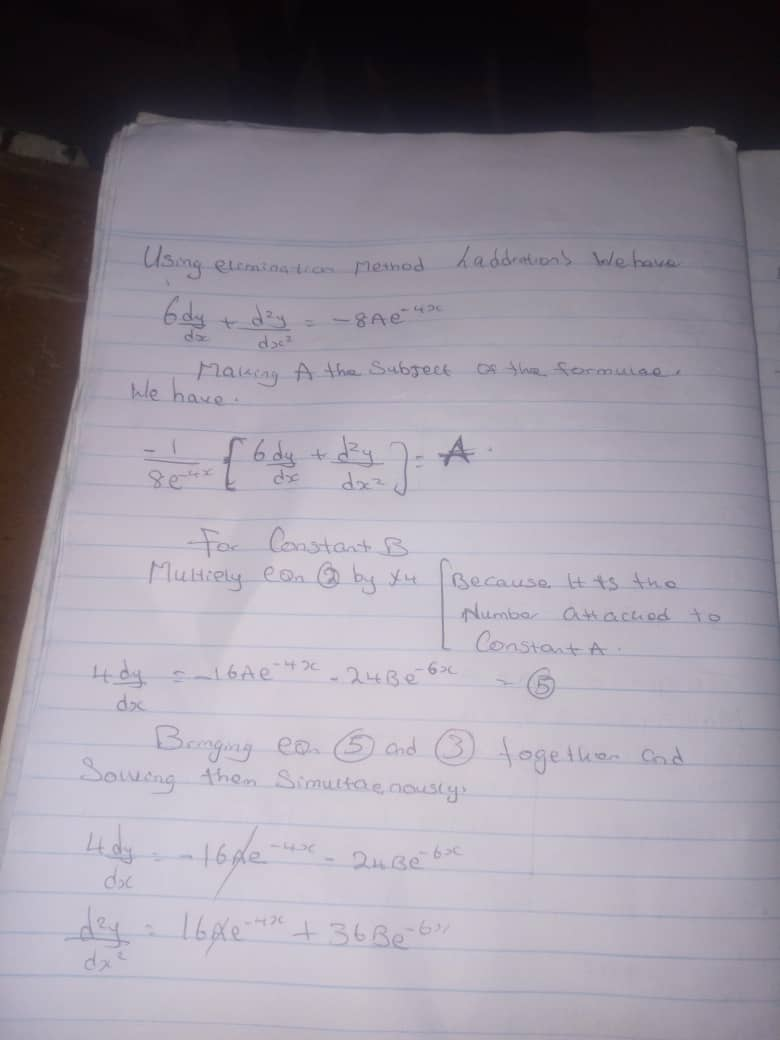 Using elimination Method (addition) We have
6dy/dx + d²y/dx² = -8Ae^-4x
Making A the Subject of the formulae.
We have.
-1/8e^-4x [6dy/dx + d²y/dx²] = A.
For Constant B
Multiply eqn ② by x4 [Because it is the
Number attached to
Constant A.
4dy/dx = -16Ae^-4x - 24Be^-6x = ⑤
Bringing eqn ⑤ and ③ together and
Solving them Simultaenously.
4dy/dx = -16Ae^-4x - 24Be^-6x
d²y/dx² = 16Ae^-4x + 36Be^-6x